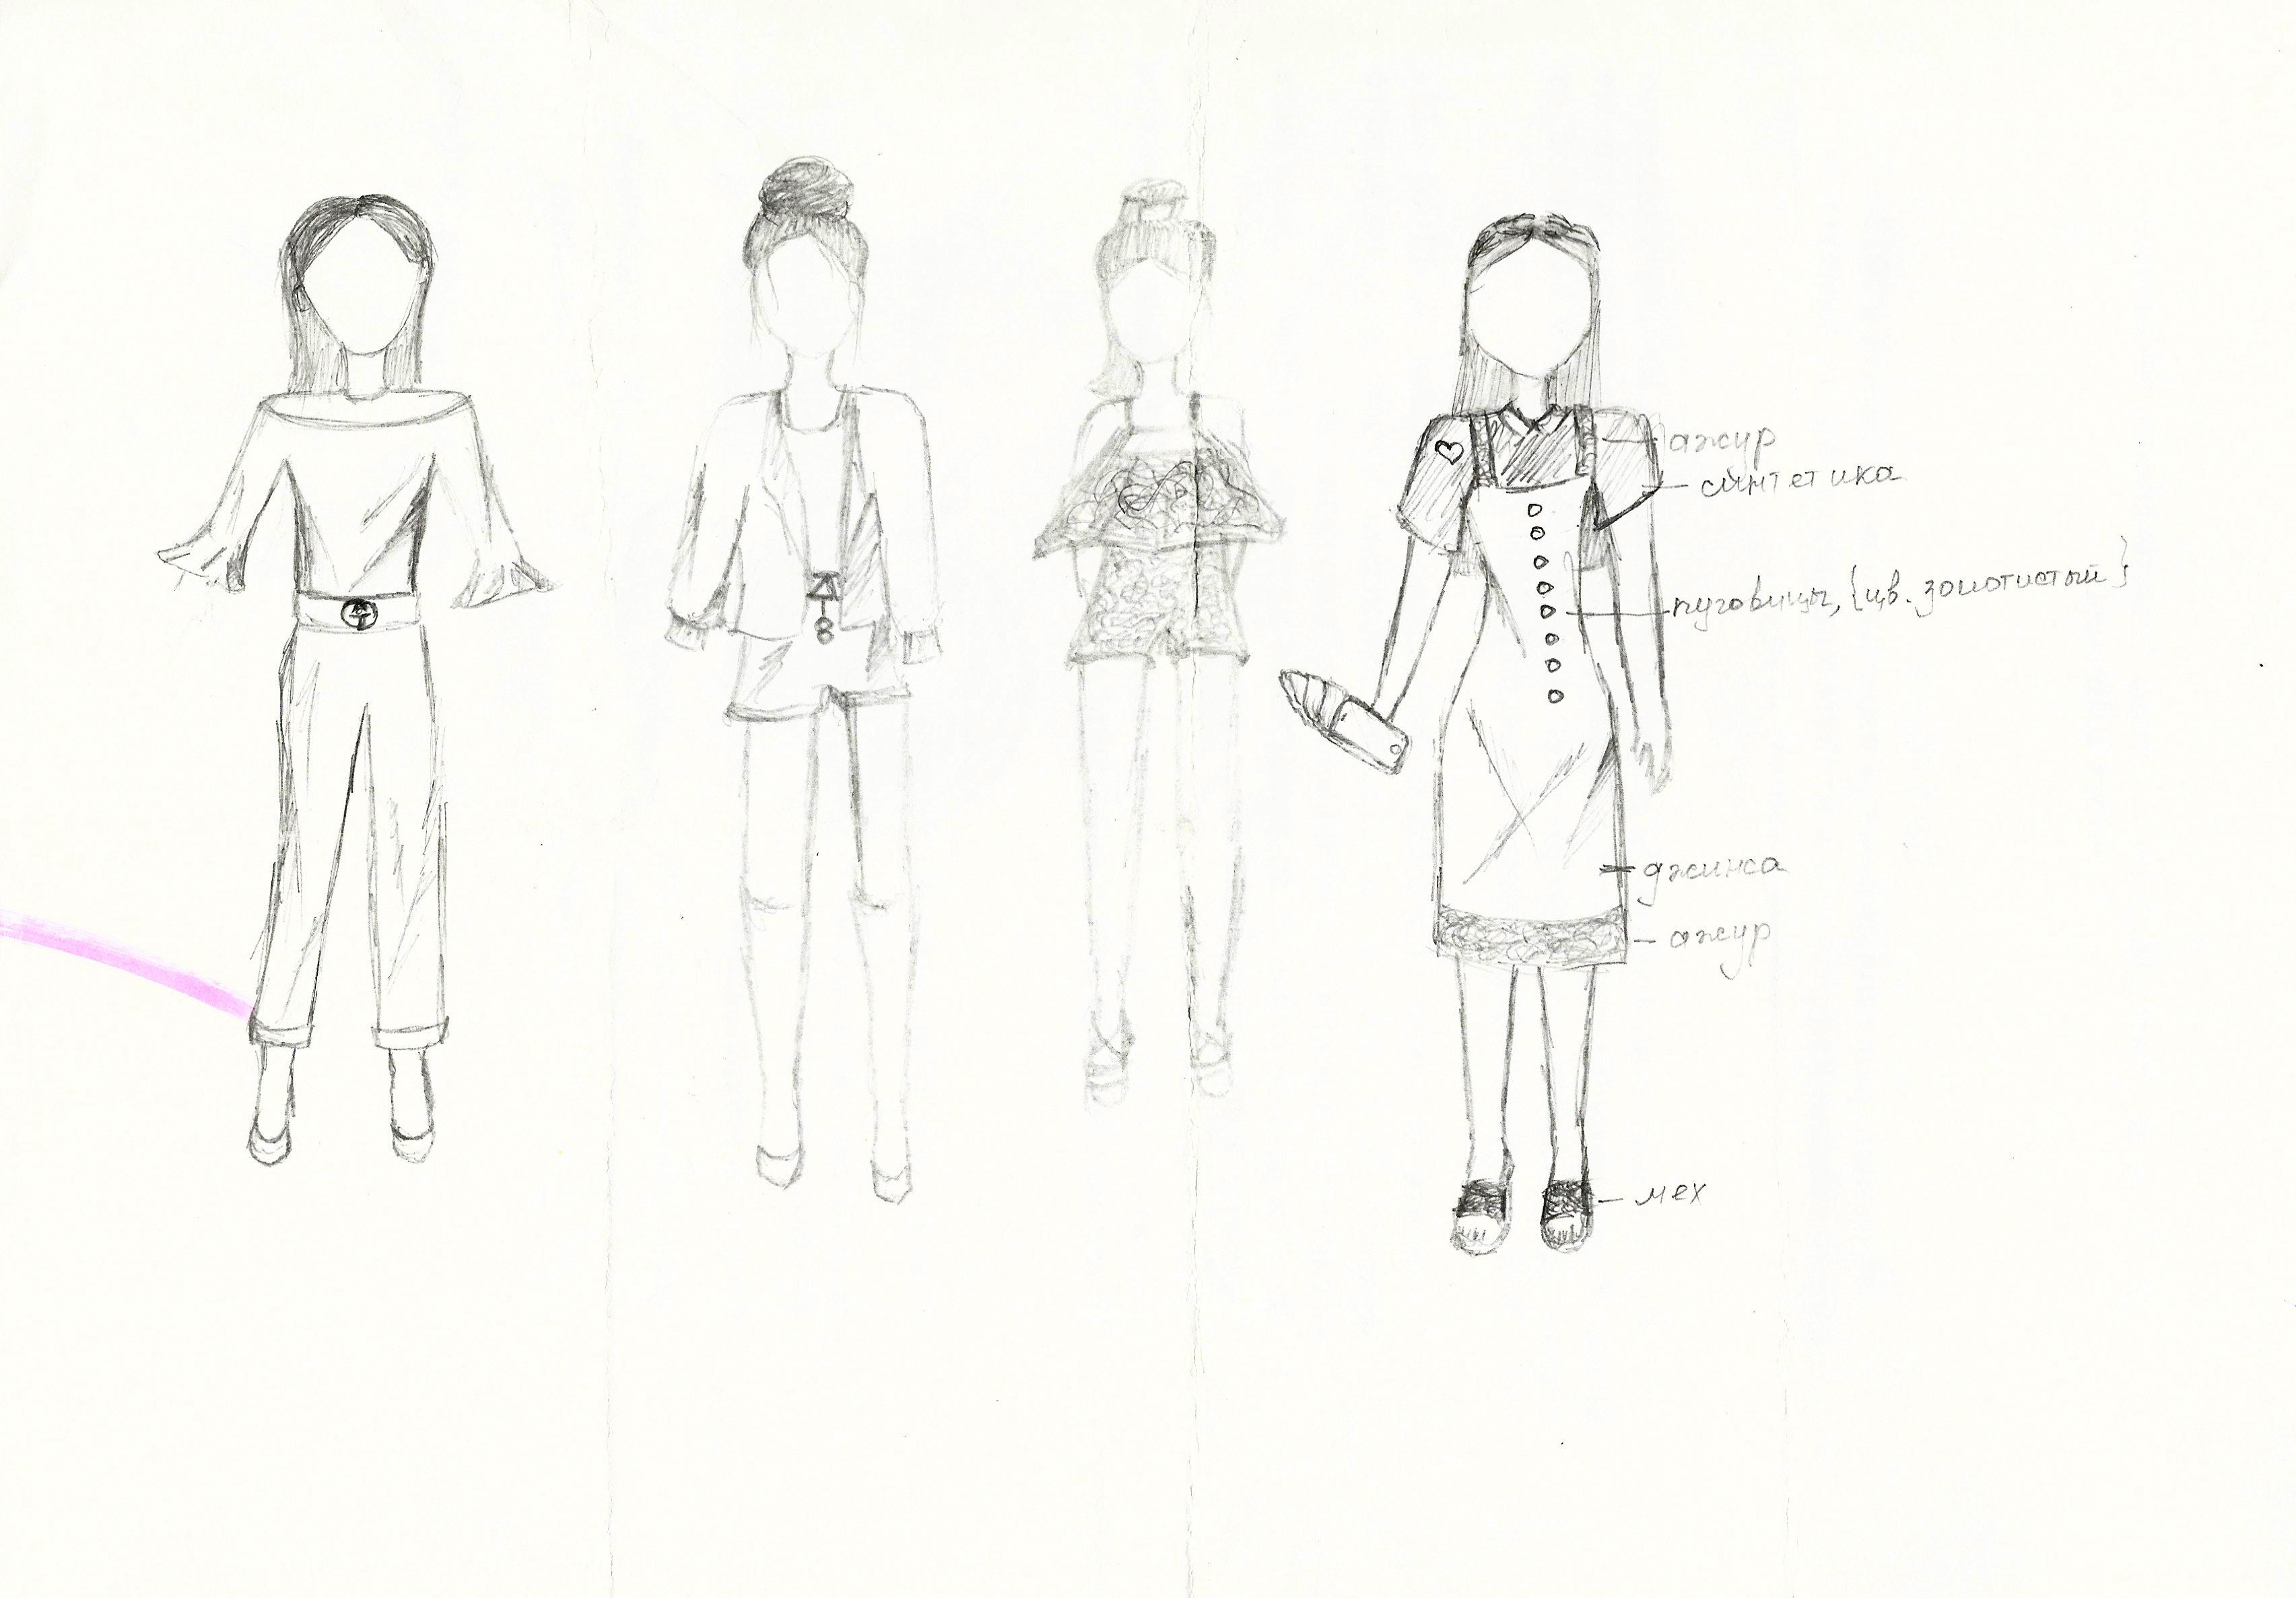 ажур
синтетика
пуговицы, {цв. золотистый}
джинса
ажур
мех